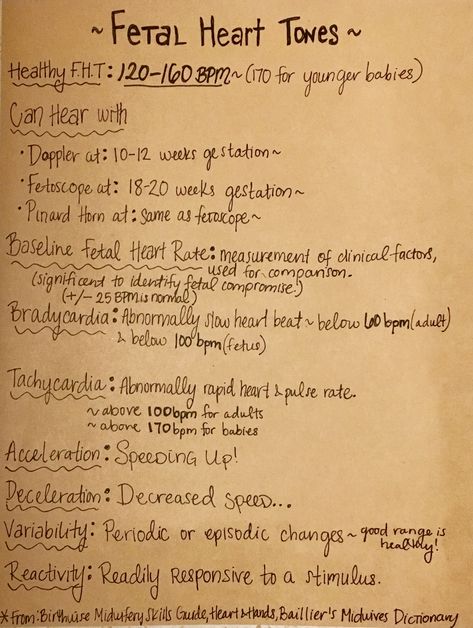 ~ Fetal Heart Tones ~
Healthy F.H.T: 120-160 BPM~ (170 for younger babies)
Can Hear with
• Doppler at: 10-12 weeks gestation~
• Fetoscope at: 18-20 weeks gestation~
• Pinard Horn at: same as fetoscope~
Baseline Fetal Heart Rate: measurement of clinical factors,
used for comparison.
(significant to identify fetal compromise.)
(+/- 25 BPM is normal)
Bradycardia: Abnormally slow heart beat ~ below 60 bpm (adult)
& below 100 bpm (fetus)
Tachycardia: Abnormally rapid heart & pulse rate.
~ above 100 bpm for adults
~ above 170 bpm for babies
Acceleration: Speeding Up!
Deceleration: Decreased speed...
Variability: Periodic or episodic changes ~ good range is
healthy!
Reactivity: Readily Responsive to a stimulus.
* From: Birthwise Midwifery Skills Guide, Heart & Hands, Baillier's Midwives Dictionary